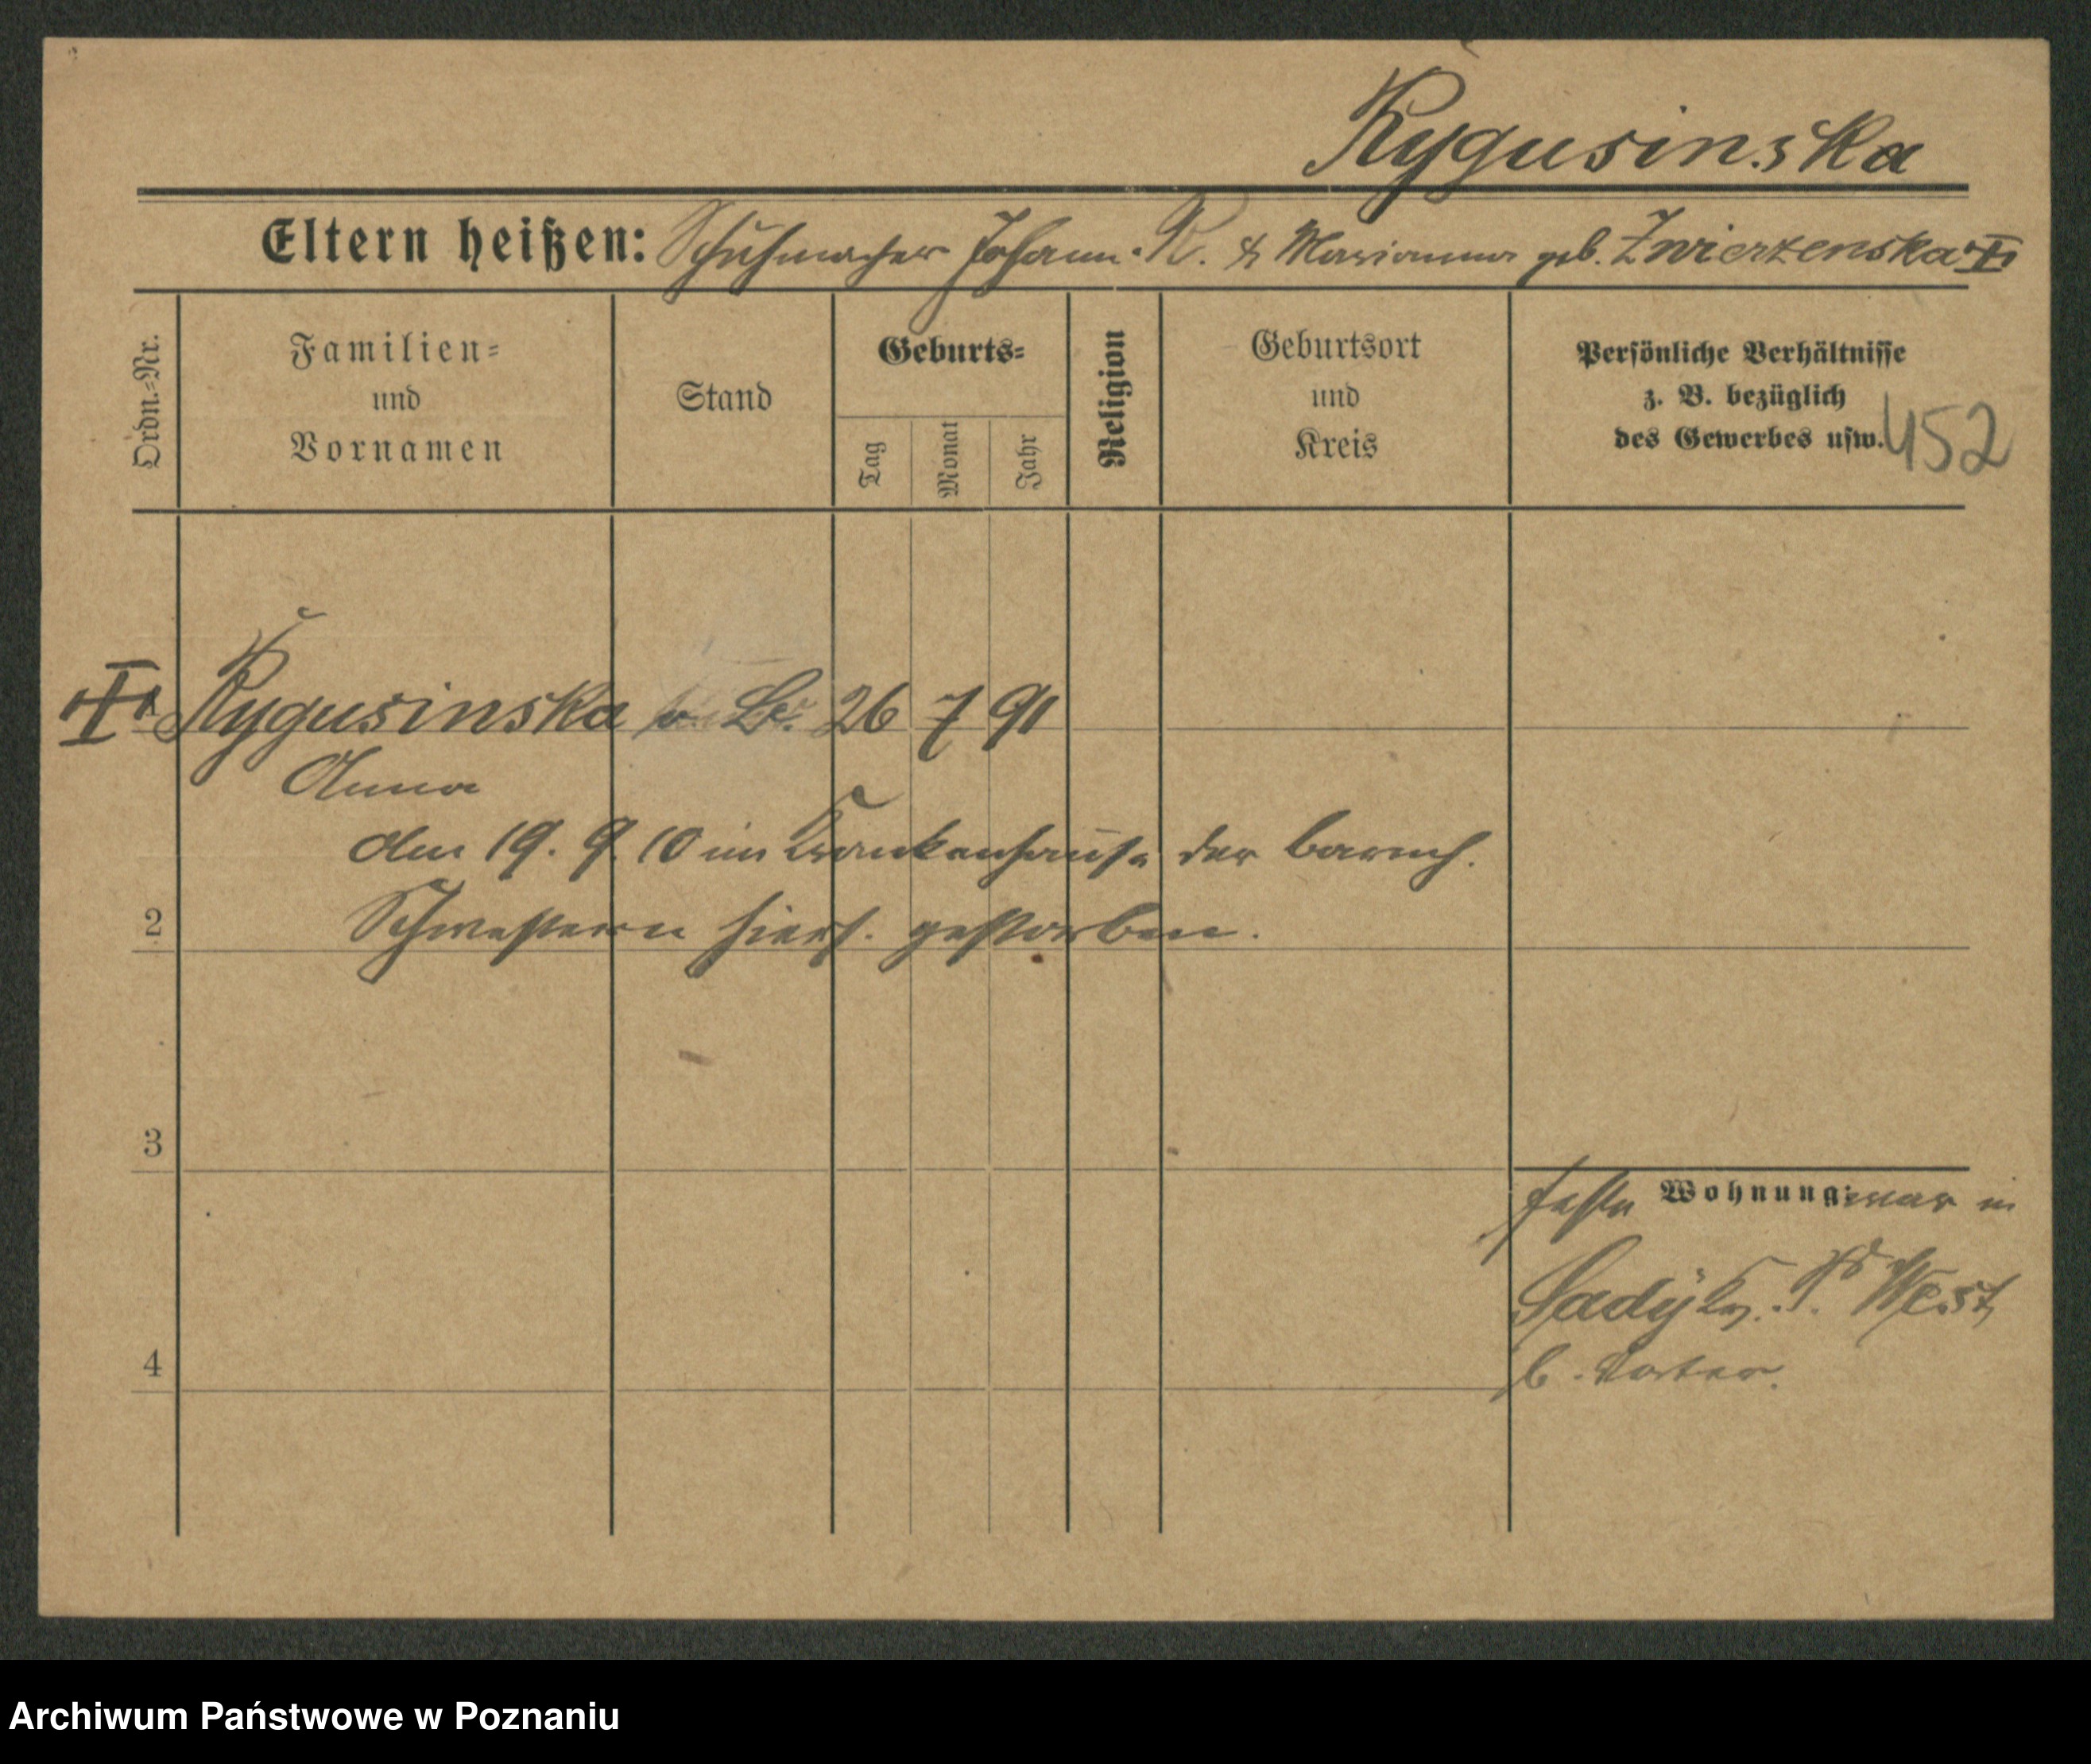 Rygusinska
Eltern heißen: Schuhmacher Johann R. & Marianna geb. Zwierzenska
Ordn.-Nr.
Familien-
und
Vornamen
Stand
Geburts-
Tag
Monat
Jahr
Religion
Geburtsort
und
Kreis
Persönliche Verhältnisse
z. B. bezüglich
des Gewerbes usw.
452
Rygusinska 26 7 91
Anna
den 19. 9. 10 im Krankenhause der barmh.
2 Schwestern hiers. gestorben.
3
feste Wohnung: war in
Sady Kr. Pos. West
4 b. Vater.
Archiwum Państwowe w Poznaniu